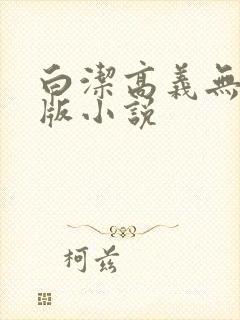 白潔高義無
版小說
柯兹